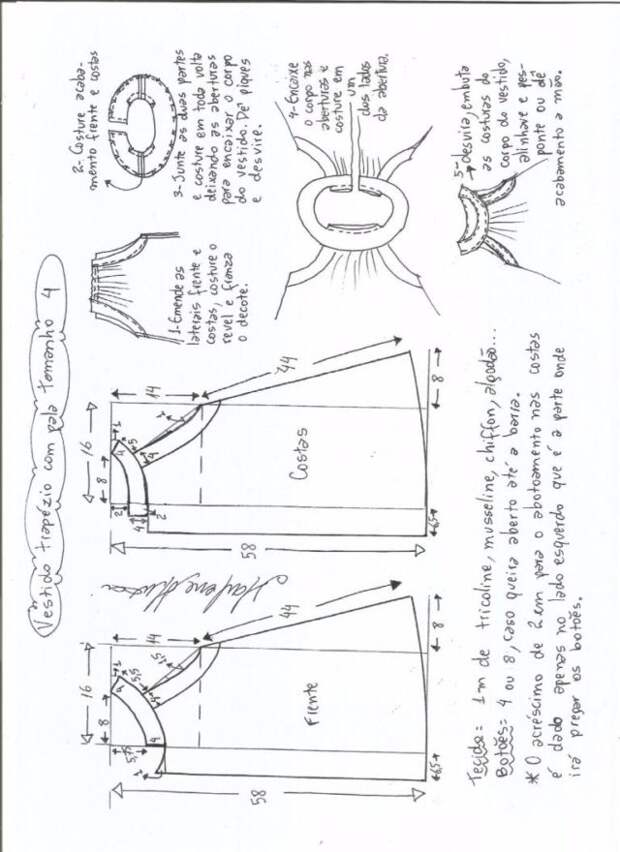 Vestido trapézio com pala tamanho 4
16
8
14
4
5,5
1,5
44
58
Frente
8
6,5
Marlene Mukai
16
8
14
2
4
4
44
58
Costas
8
6,5
1- Emende as
laterais frente e
costas, costure o
revel e franza
o decote.
2- Costure acaba-
mento frente e costas
3- Junte as duas partes
e costure em toda volta
deixando as aberturas
para encaixar o corpo
do vestido. Dê piques
e desvire.
4- Encaixe
o corpo nas
aberturas e
costure em
um
dos lados
da abertura.
5- desvira, embuta
as costuras do
corpo do vestido,
alinhave e pes-
ponte ou dê
acabamento a mão.
Tecido= 1m de tricoline, musseline, chiffon, algodão...
Botões= 4 ou 8, caso queira aberto até a barra.
* O acréscimo de 2cm para o abotoamento nas costas
é dado apenas no lado esquerdo que é a parte onde
irá pregar os botões.